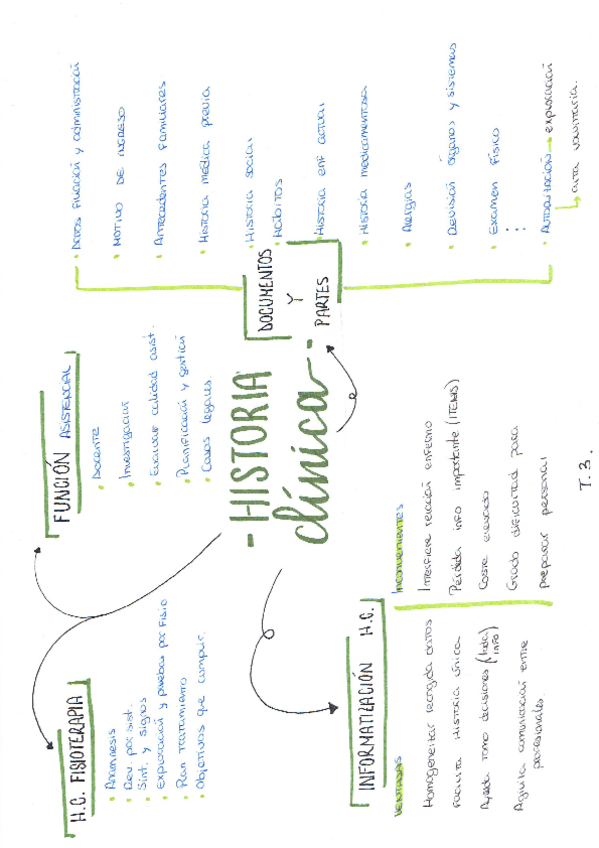 H.C. FISIOTERAPIA
• Anamnesis
• Rev. por sist.
Sint. y signos
• Exploración y pruebas por fisio
• Plan tratamiento
• Objetivos que cumplir.
FUNCIÓN ASISTENCIAL
• Docente
• Investigación
• Evaluar calidad asist.
• Planificación y gestión
• Casos legales.
- HISTORIA
clínica -
DOCUMENTOS
Y
PARTES
• Datos filiación y administración
• MOTIVO DE INGRESO
• Antecedentes familiares
• Historia médica previa
• Historia social
• Hábitos
• Historia enf actual
• Historia medicamentosa
• Alergias
• Revisión órganos y sistemas
• Examen físico
• Autorización → exploración
↳ alta voluntaria.
INFORMATIZACIÓN H.C.
VENTAJAS
Homogeneizar recogida datos
Facilita Historia única
Ayuda toma decisiones (toda info)
Agiliza comunicación entre
profesionales.
Inconvenientes
Interfiere relación enfermo
Pérdida info importante (ITEMS)
Coste elevado
Grado dificultad para
preparar personal
T.3.